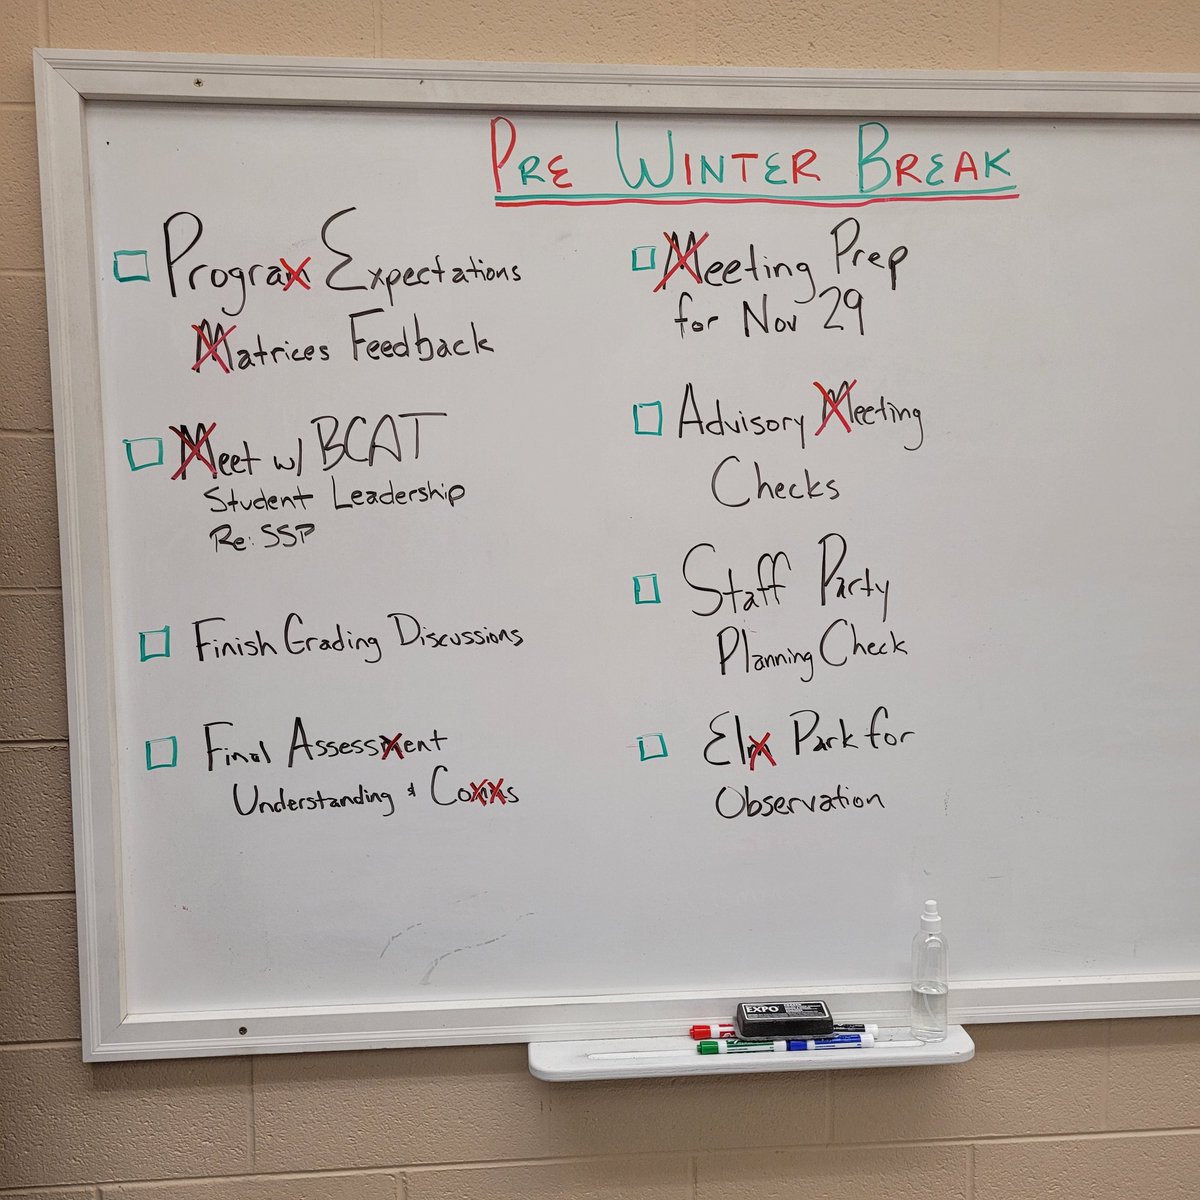 PRE WINTER BREAK
Program Expectations
Matrices Feedback
Meet w/ BCAT
Student Leadership
Re: SSP
Finish Grading Discussions
Final Assessment
Understanding & Comms
Meeting Prep
for Nov 29
Advisory Meeting
Checks
Staff Party
Planning Check
Elm Park for
Observation
EXPO